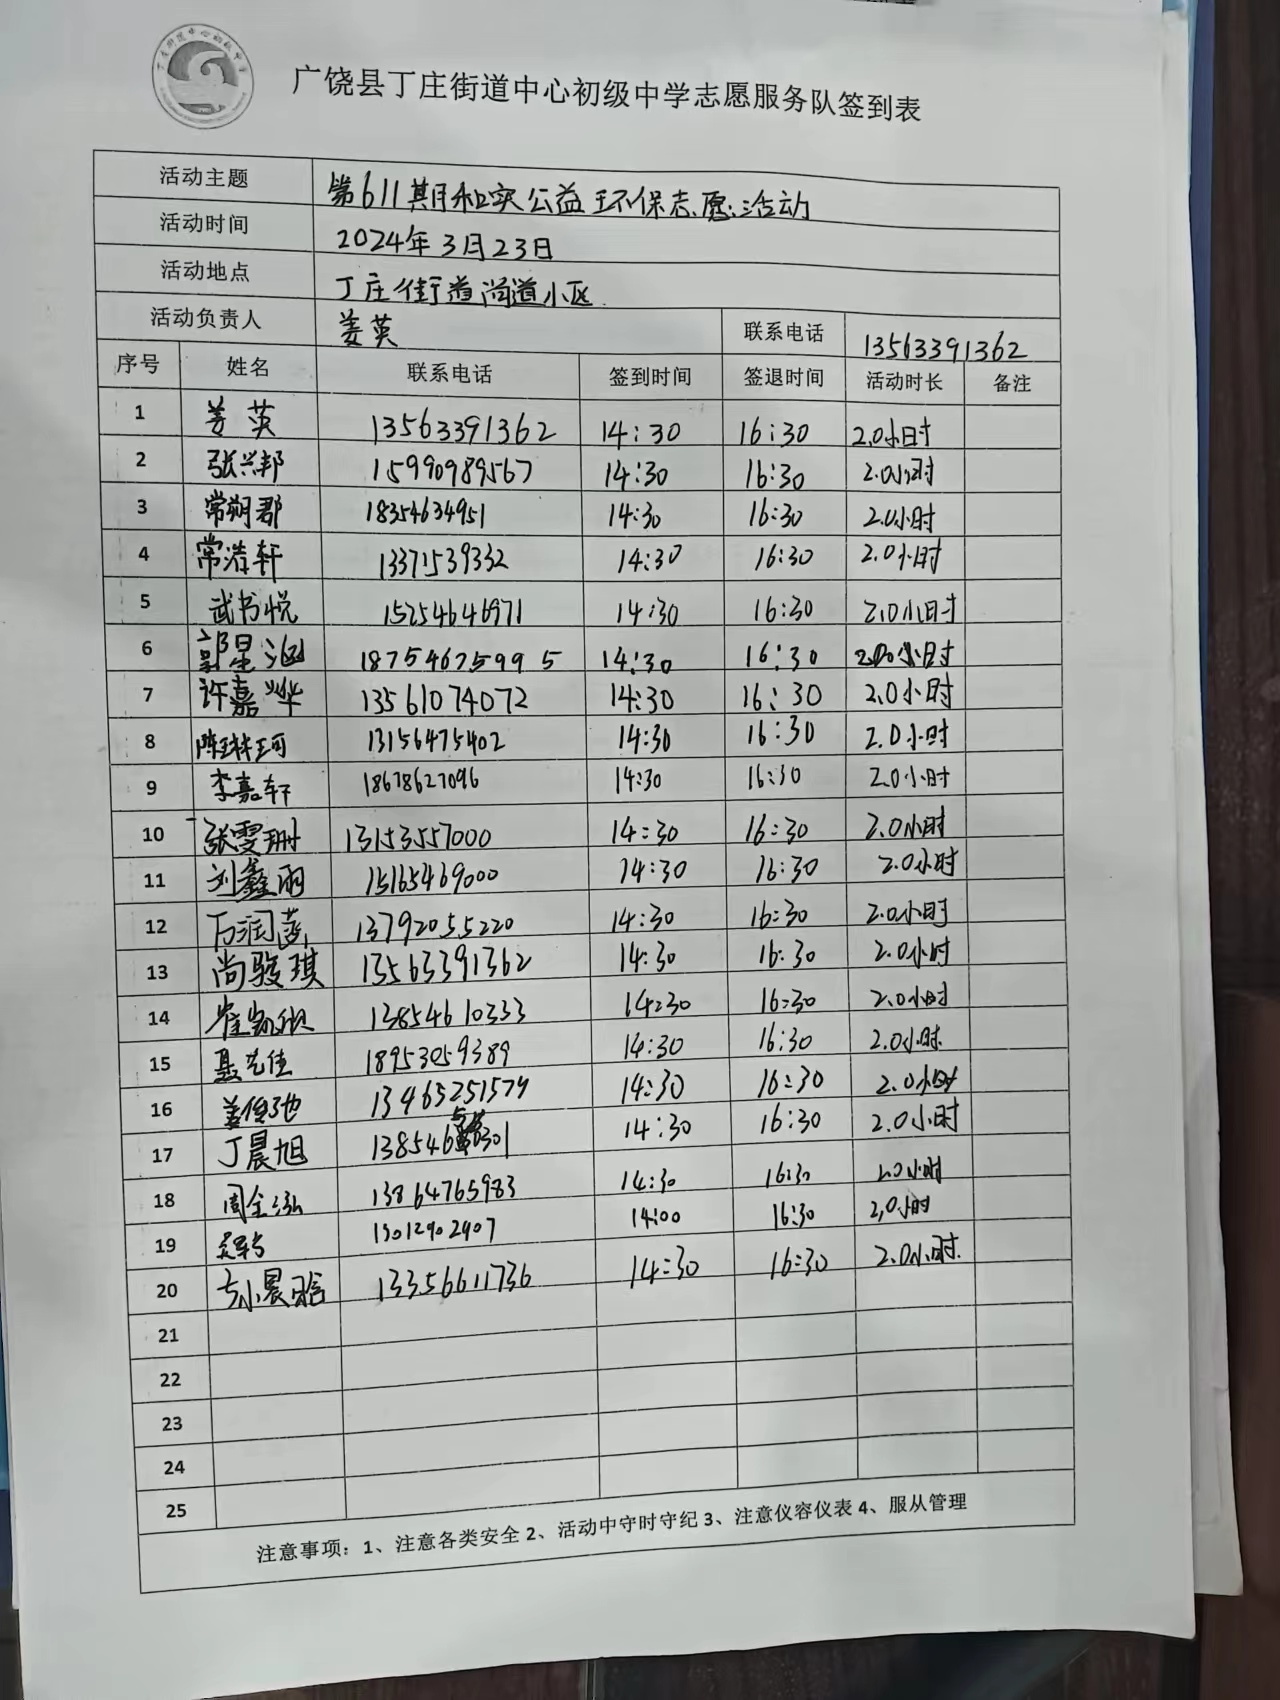 广饶县丁庄街道中心初级中学志愿服务队签到表
活动主题 第611期和实公益环保志愿活动
活动时间 2024年3月23日
活动地点 丁庄街道尚道小区
活动负责人 姜英 联系电话 13563391362
序号 姓名 联系电话 签到时间 签退时间 活动时长 备注
1 姜英 13563391362 14:30 16:30 2.0小时
2 张兴邦 15990989567 14:30 16:30 2.0小时
3 常朔郡 18354634951 14:30 16:30 2.0小时
4 常浩轩 13371539332 14:30 16:30 2.0小时
5 武书悦 15254646971 14:30 16:30 2.0小时
6 郭星涵 18754675995 14:30 16:30 2.0小时
7 许嘉烨 13561074072 14:30 16:30 2.0小时
8 陈梓珂 13156475402 14:30 16:30 2.0小时
9 李嘉轩 18678627096 14:30 16:30 2.0小时
10 张雯珊 13153557000 14:30 16:30 2.0小时
11 刘鑫雨 15165469000 14:30 16:30 2.0小时
12 万润 13792055220 14:30 16:30 2.0小时
13 尚骏琪 13563391362 14:30 16:30 2.0小时
14 崔凯 13854610333 14:30 16:30 2.0小时
15 聂先佳 18953059389 14:30 16:30 2.0小时
16 姜俊池 13465251579 14:30 16:30 2.0小时
17 丁晨旭 14:30 16:30 2.0小时
18 周全泓 13864765983 14:30 16:30 2.0小时
19 13012902907 14:00 16:30 2.0小时
20 晨晗 13356611736 14:30 16:30 2.0小时
21
22
23
24
25
注意事项：1、注意各类安全 2、活动中守时守纪 3、注意仪容仪表 4、服从管理